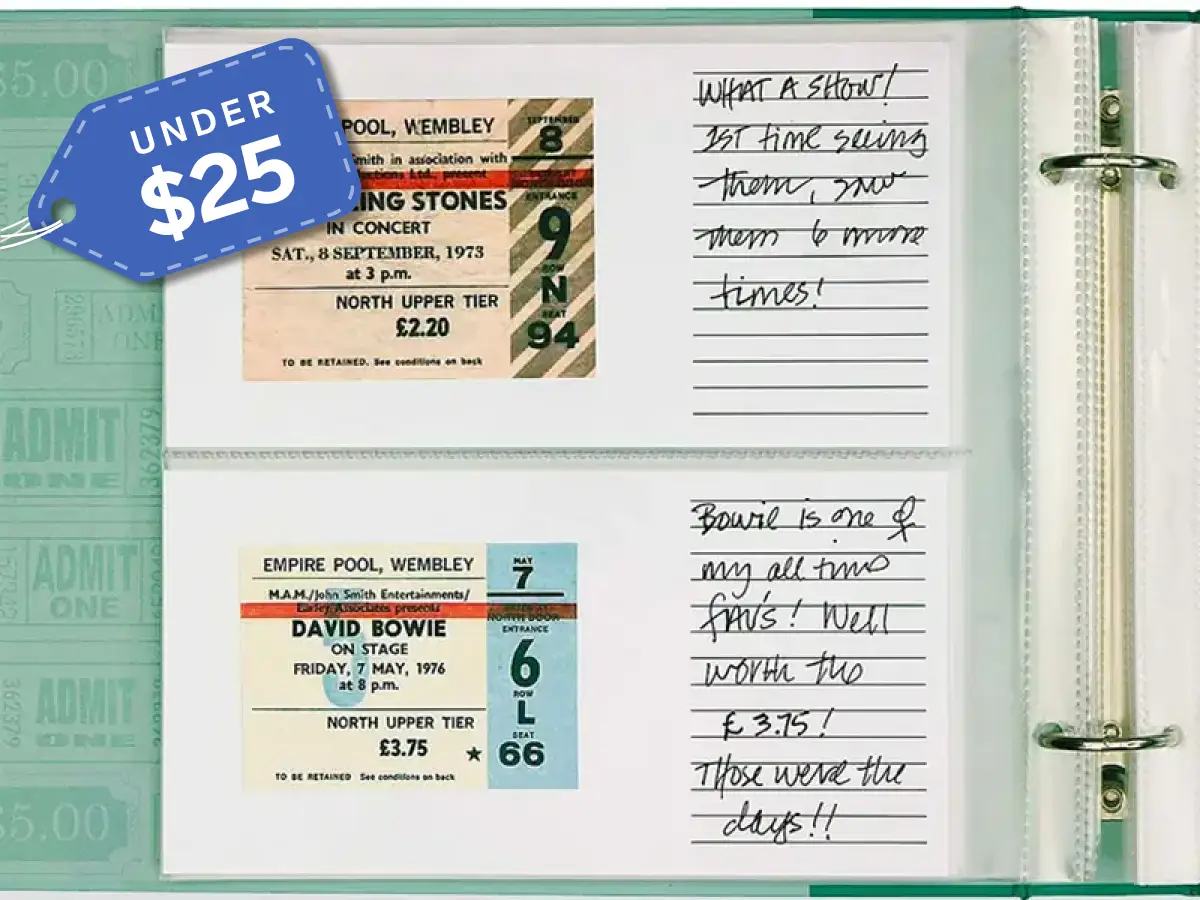 $5.00
UNDER
$25
POOL, WEMBLEY
Smith in association with
ctions Ltd., present
ING STONES
IN CONCERT
SAT., 8 SEPTEMBER, 1973
at 3 p.m.
NORTH UPPER TIER
£2.20
TO BE RETAINED. See conditions on back
SEPTEMBER
8
ENTRANCE
9
ROW
N
SEAT
94
WHAT A SHOW!
1ST time seeing
them, saw
them 6 more
times!
296573
ADMI
ONE
ADMIT
ONE
362379
ADMIT
ONE
362379
ADMIT
ONE
$5.00
EMPIRE POOL, WEMBLEY
M.A.M./John Smith Entertainments/
Earley Associates presents
DAVID BOWIE
ON STAGE
FRIDAY, 7 MAY, 1976
at 8 p.m.
NORTH UPPER TIER
£3.75
TO BE RETAINED See conditions on back
MAY
7
NORTH DOOR
ENTRANCE
6
ROW
L
SEAT
66
Bowie is one of
my all time
fAV's! Well
worth the
£3.75!
Those were the
days!!